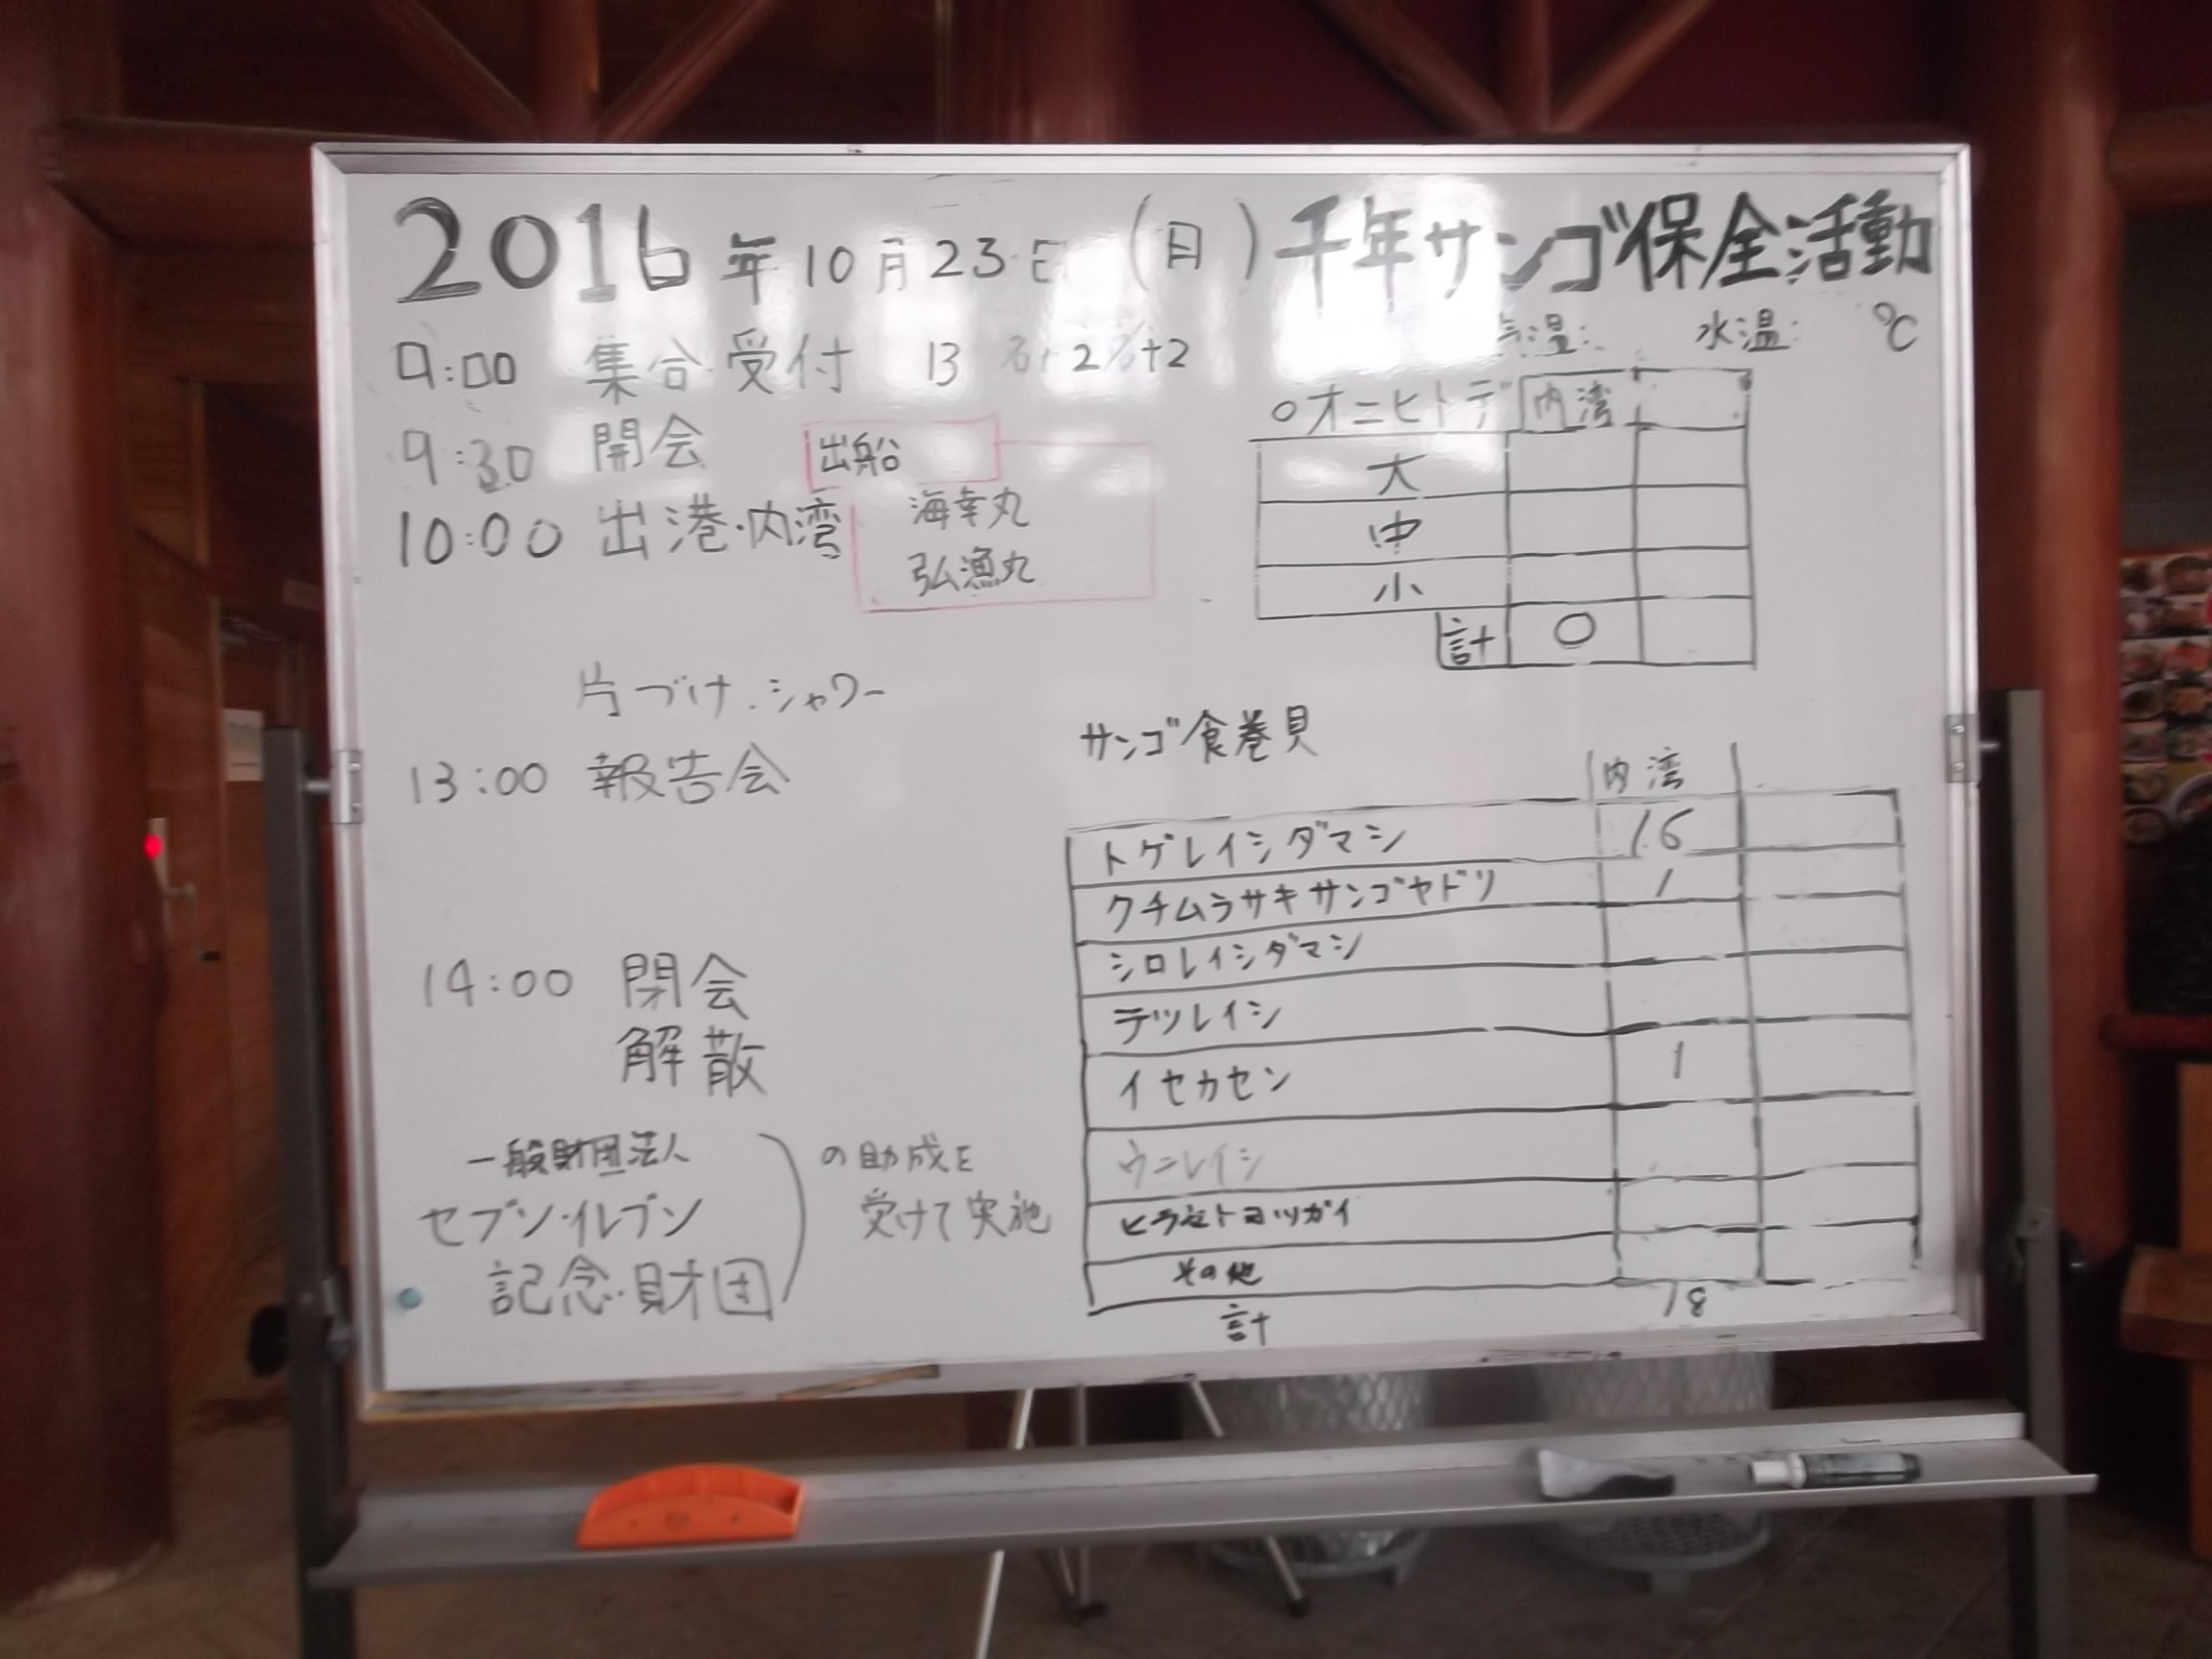 2016年10月23日(日)千年サンゴ保全活動
気温: 水温: ℃
9:00 集合・受付 13 +2
9:30 開会
出船
10:00 出港・内湾
海幸丸
弘漁丸
片づけ・シャワー
13:00 報告会
14:00 閉会
解散
一般財団法人
セブン-イレブン
記念・財団
の助成を
受けて実施
○オニヒトデ 内湾
大
中
小
計 0
サンゴ食巻貝
内湾
トゲレイシダマシ 16
クチムラサキサンゴヤドリ 1
シロレイシダマシ
テツレイシ
イセカセン 1
ウニレイシ
ヒラセトヨツガイ
その他
計 18